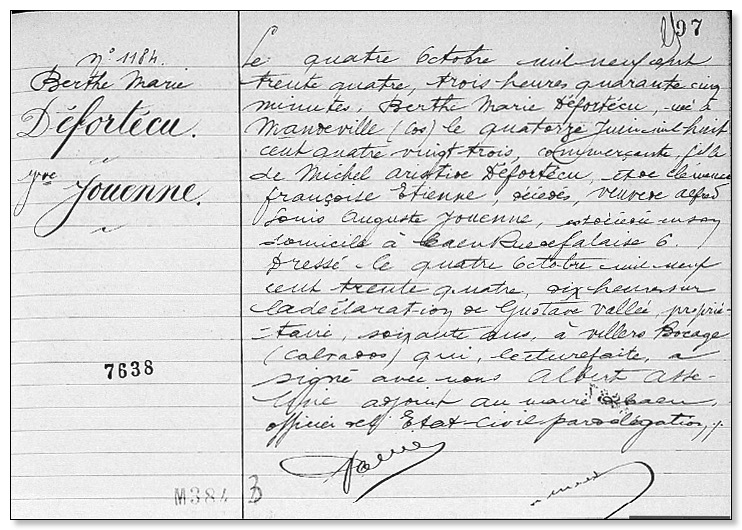 97
N° 1184.
Berthe Marie
Défortécu.
Vve
Jouenne.
7638
M384
Le quatre Octobre mil neuf cent
trente quatre, trois heures quarante cinq
minutes, Berthe Marie Défortécu, née à
Mandeville (Cos) le quatorze Juin mil huit
cent quatre vingt trois, commerçante, fille
de Michel Aristide Défortécu, et de Clémence
françoise Etienne, décédés, veuve de Alfred
Louis Auguste Jouenne, est décédée en son
domicile à Caen Rue de falaise 6.
Dressé le quatre Octobre mil neuf
cent trente quatre, dix heures sur
la déclaration de Gustave Vallée, proprié-
-taire, soixante ans, à Villers Bocage
(Calvados) qui, lecture faite, a
signé avec nous Albert Asse-
line adjoint au maire de Caen,
officier de l'Etat-Civil par délégation,